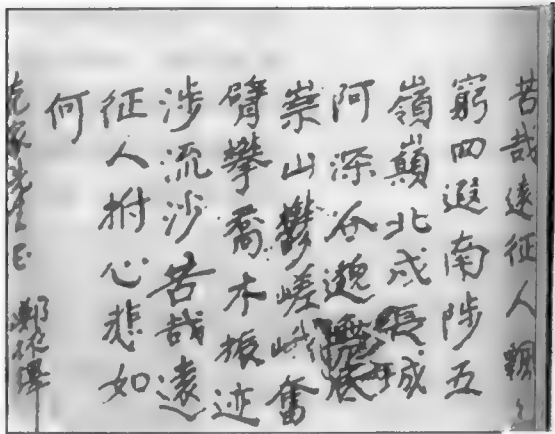 苦哉遠征人飄
窮四遐南陟五
嶺巔北戍長城
阿深谷邈底
崇山鬱嵯峨奮
臂攀喬木振迹
涉流沙苦哉遠
征人拊心悲如
何
克家先生正 鄭振鐸